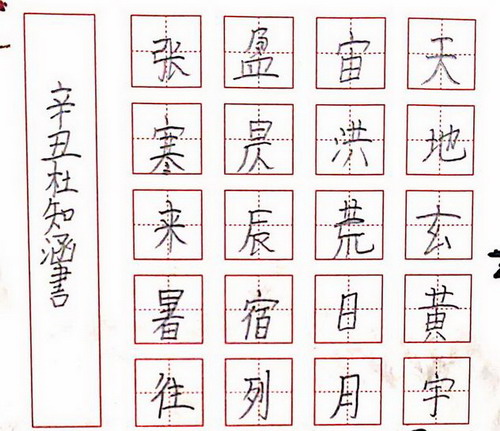 天地玄黄宇
宙洪荒日月
盈昃辰宿列
张寒来暑往
辛丑杜知涵書